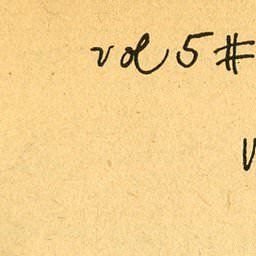 vol 5 #